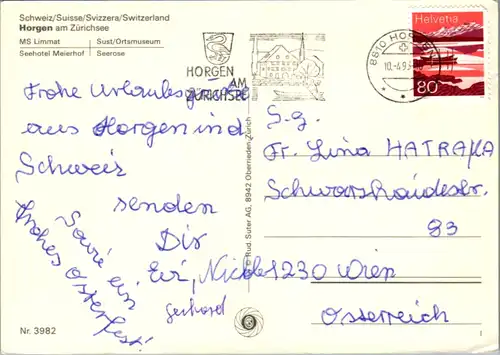 Schweiz/Suisse/Svizzera/Switzerland
Horgen am Zürichsee
MS Limmat Sust/Ortsmuseum
Seehotel Meierhof Seerose
HORGEN
AM
ZÜRICHSEE
8810 HORGEN
10.-4.93
Helvetia
80
Frohe Urlaubsgrüsse
aus Horgen in d
Schweiz
senden
Dir
Evi, Nicole
gerhard
Sowie ein
frohes Osterfest!
S.g.
Fr. Lina HATRAKA
Schwarzhaidestr.
93
1230 Wien
Österreich
© Rud. Suter AG, 8942 Oberrieden, Zürich
Nr. 3982